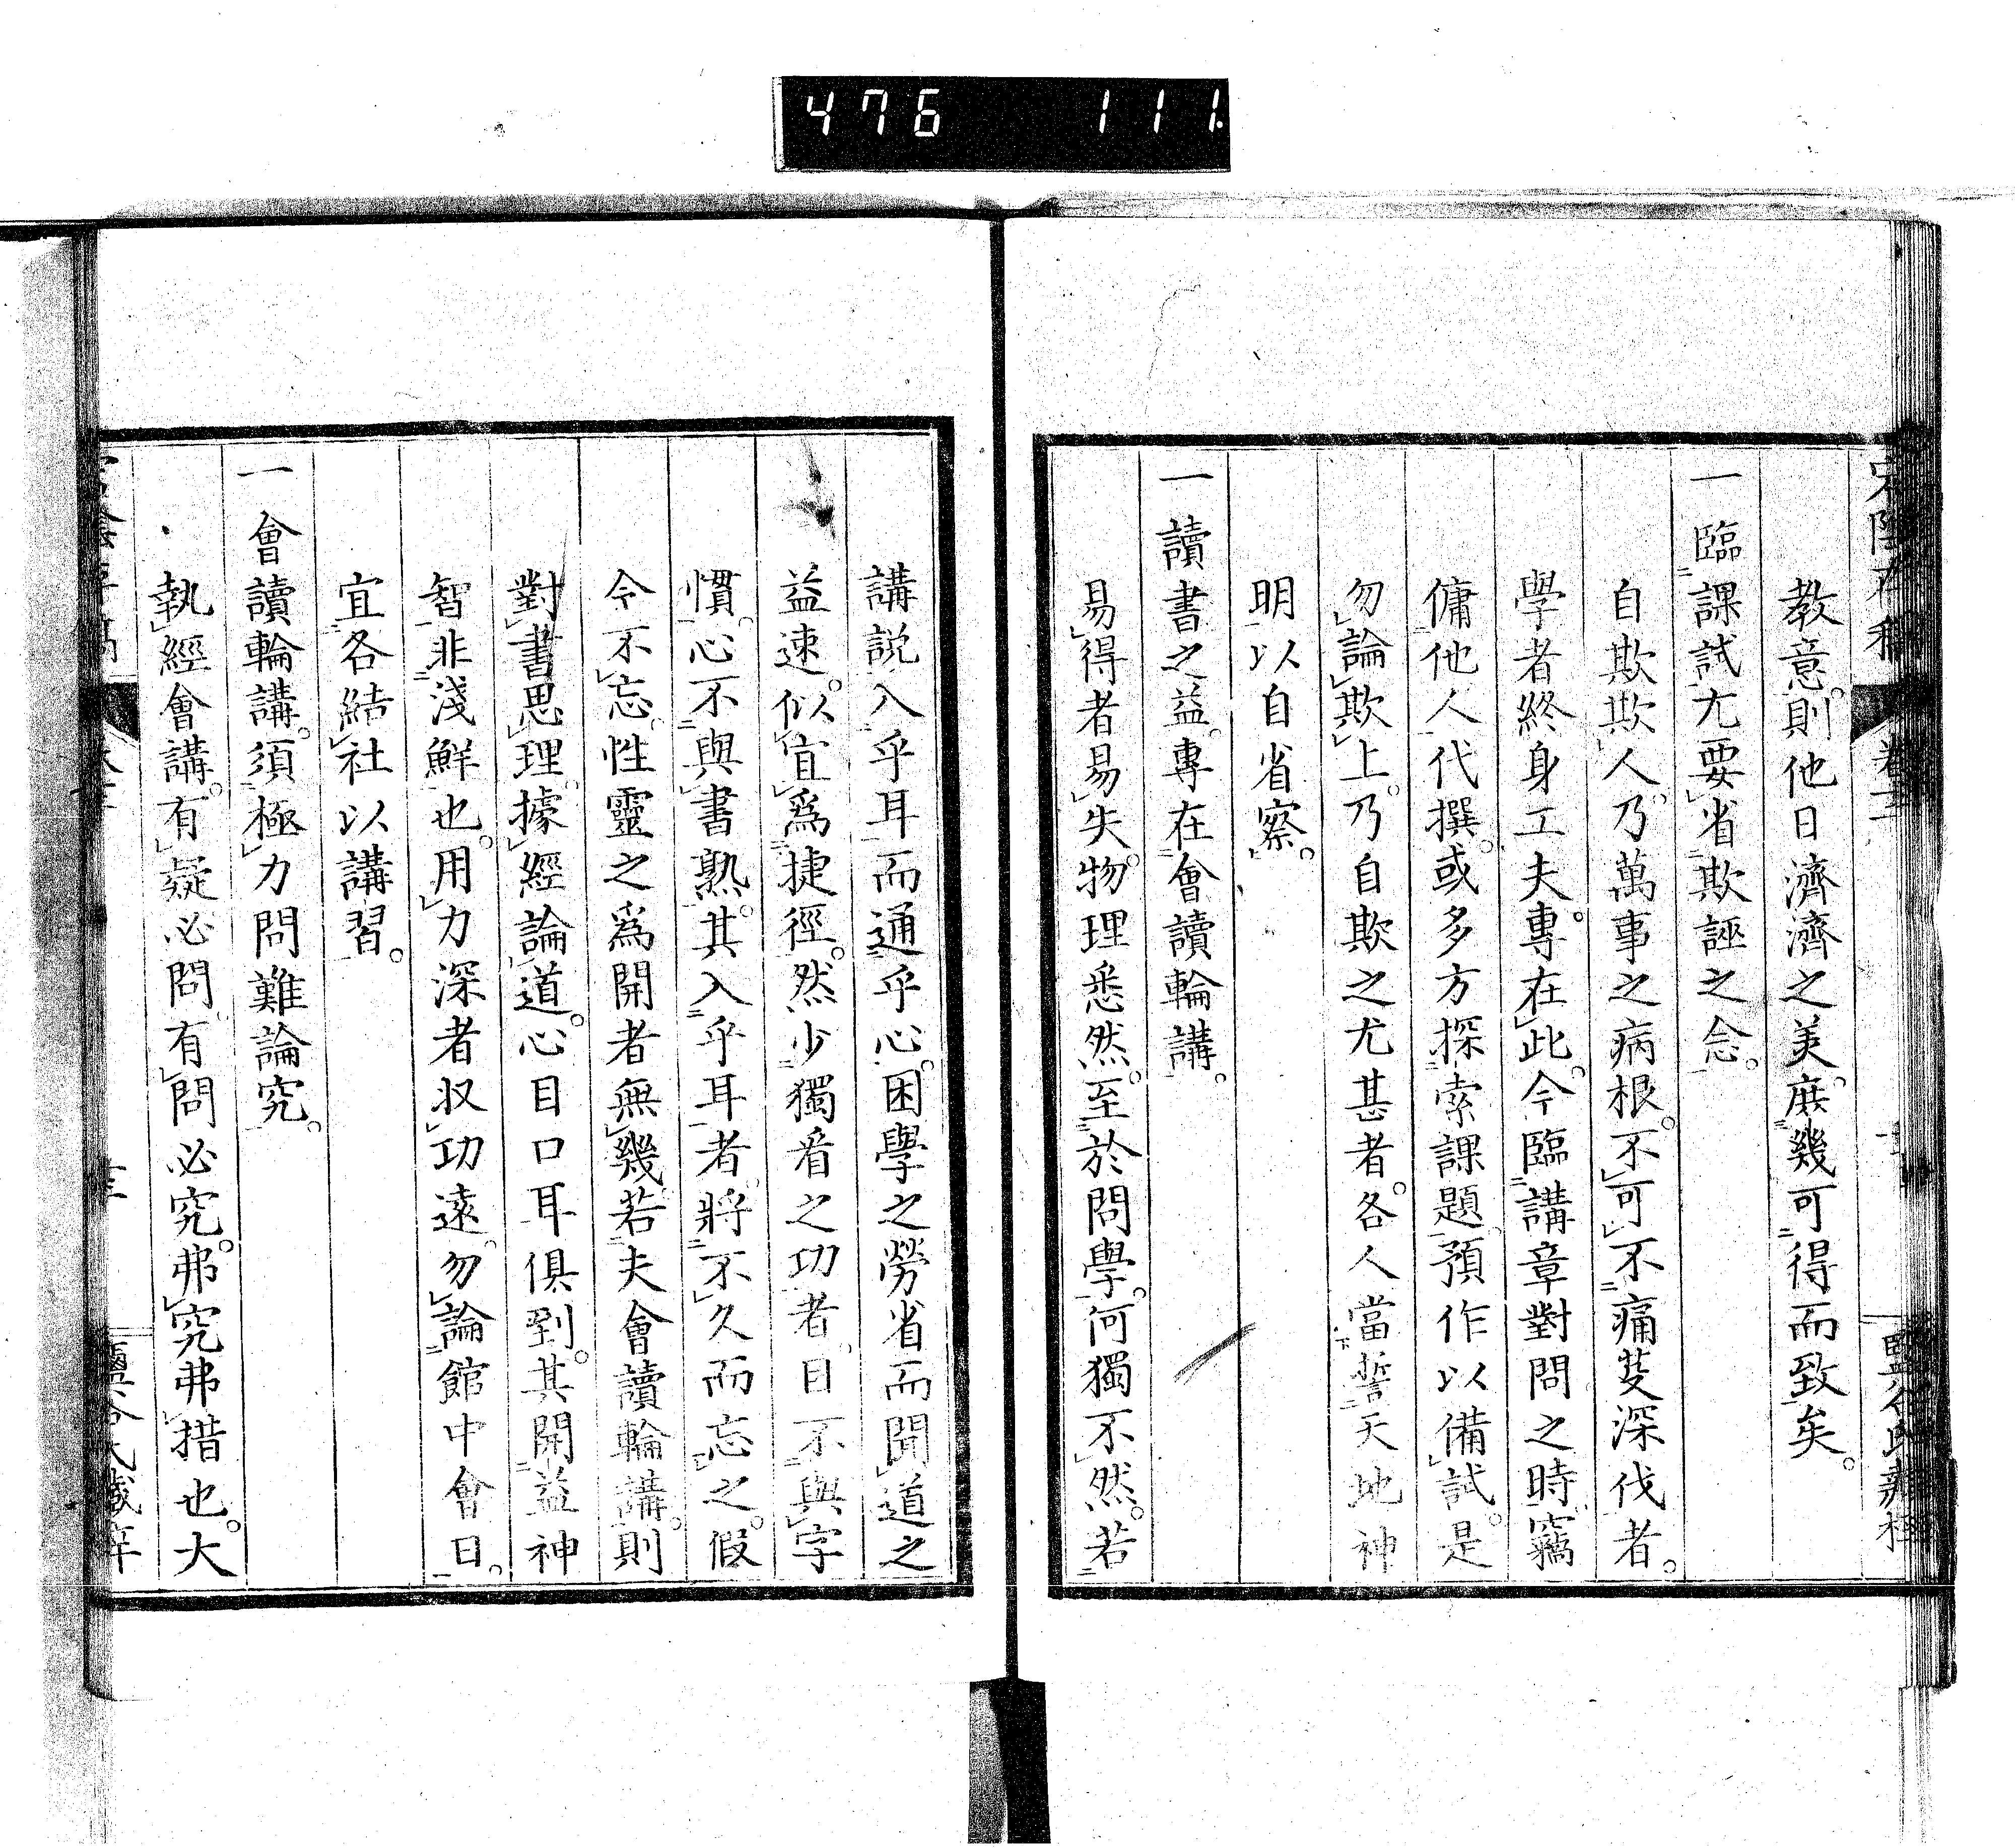 476 111.
教意。則他日濟濟之美。庶幾可得而致矣。
一臨課試尤要省欺誣之念。
自欺欺人。乃萬事之病根。不可不痛芟深伐者。
學者終身工夫。專在此。今臨講章對問之時。竊
傭他人代撰。或多方探索課題。預作以備試。是
勿論欺上。乃自欺之尤甚者。各人當誓天地神
明以自省察。
一讀書之益。專在會讀輪講。
易得者易失。物理悉然。至於問學。何獨不然。若
講説入乎耳而通乎心。困學之勞省而聞道之
益速。似宜爲捷徑。然少獨看之功者。目不與字
慣。心不與書熟。其入乎耳者。將不久而忘之。假
令不忘。性靈之爲開者無幾。若夫會讀輪講。則
對書思理。據經論道。心目口耳俱到。其開益神
智非淺鮮也。用力深者收功遠。勿論館中會日。
宜各結社以講習。
一會讀輪講。須極力問難論究。
執經會講。有疑必問。有問必究。弗究弗措也。大